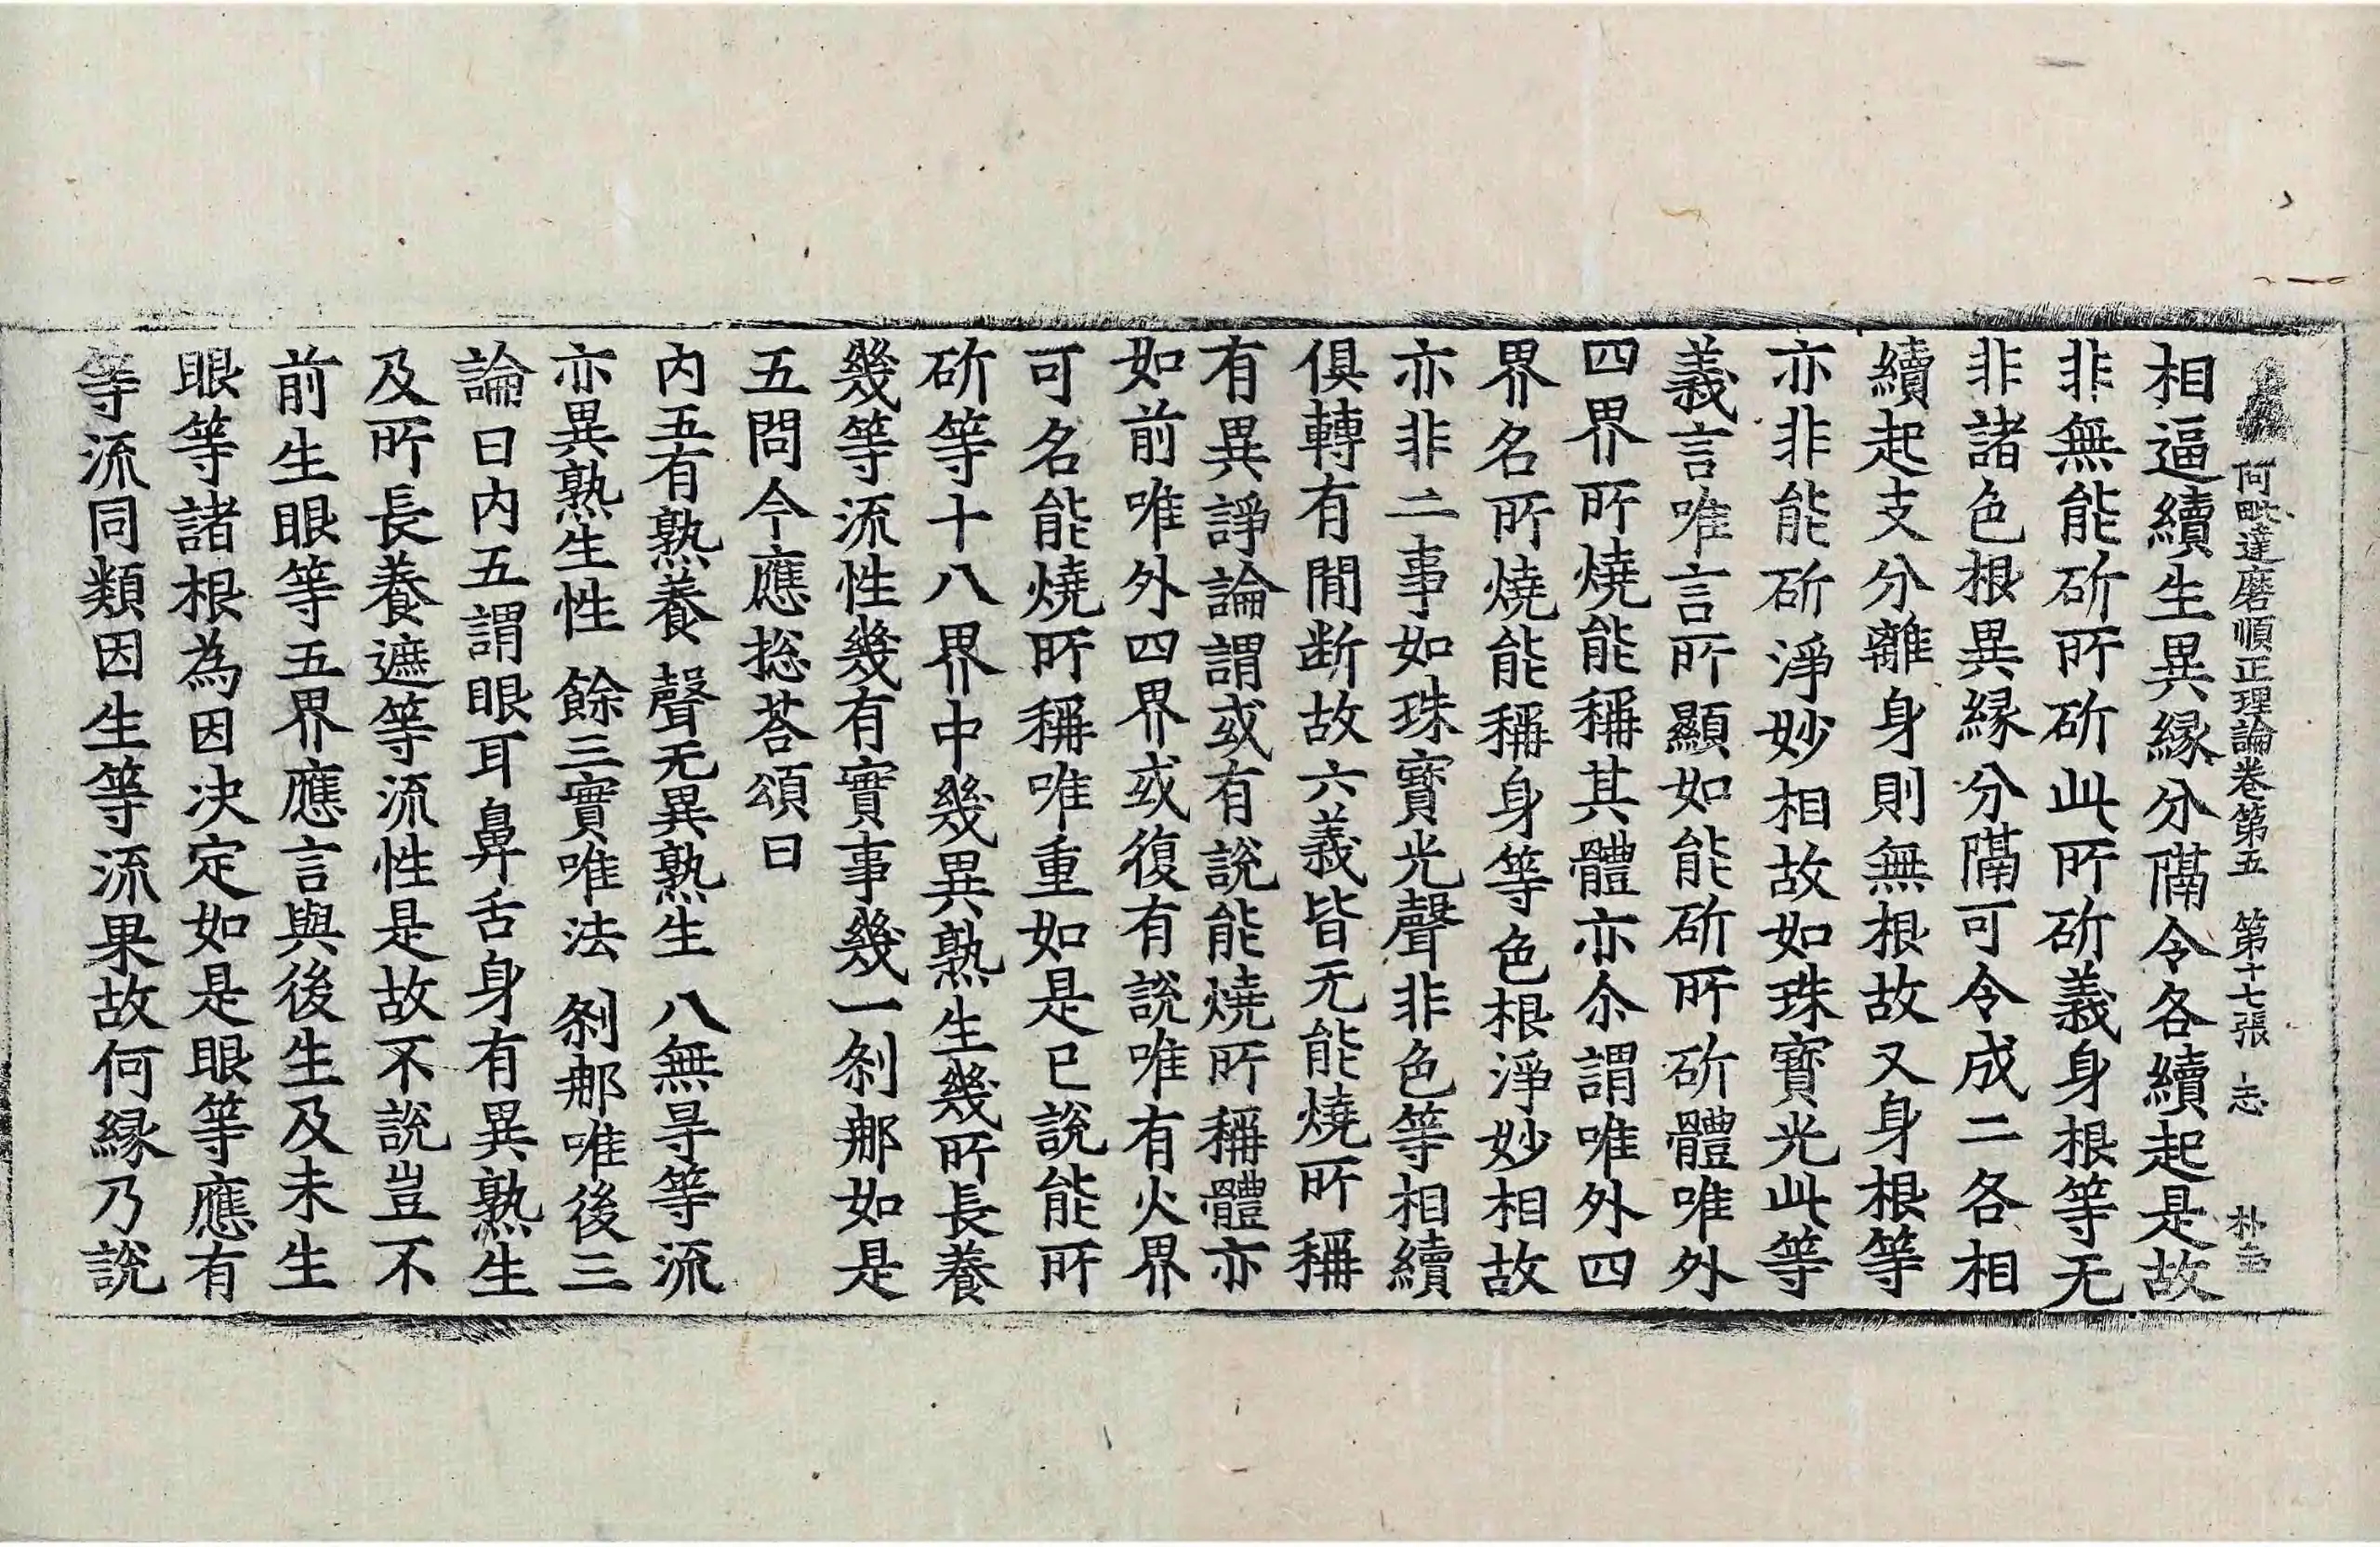 何毗達磨順正理論卷第五　第十七張　志
相逼續生異縁分隔令各續起是故
非無能斫所斫此所斫義身根等无
非諸色根異縁分隔可令成二各相
續起支分離身則無根故又身根等
亦非能斫淨妙相故如珠寳光此等
義言唯言所顯如能斫所斫體唯外
四界所燒能稱其體亦尒謂唯外四
界名所燒能稱身等色根淨妙相故
亦非二事如珠寳光聲非色等相續
俱轉有閒断故六義皆无能燒所稱
有異諍論謂或有說能燒所稱體亦
如前唯外四界或復有說唯有火界
可名能燒所稱唯重如是已說能所
斫等十八界中幾異熟生幾所長養
幾等流性幾有實事幾一刹那如是
五問今應捴荅頌曰
內五有熟養　聲无異熟生　八無㝵等流
亦異熟生性　餘三實唯法　刹那唯後三
論曰內五謂眼耳鼻舌身有異熟生
及所長養遮等流性是故不說豈不
前生眼等五界應言與後生及未生
眼等諸根為因决定如是眼等應有
等流同類因生等流果故何縁乃說